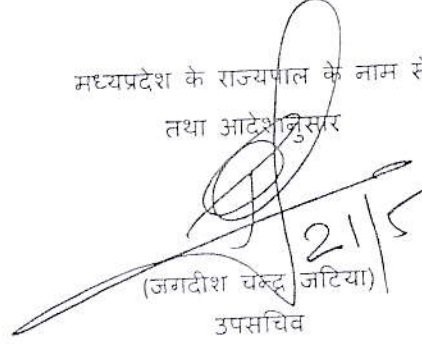 मध्यप्रदेश के राज्यपाल के नाम से
तथा आदेशानुसार
21/5
(जगदीश चन्द्र जटिया)
उपसचिव